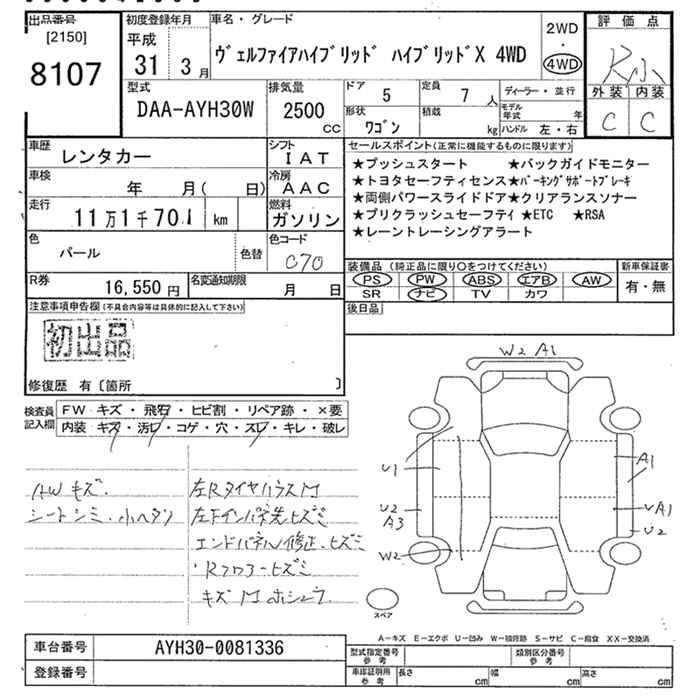 出品番号 初度登録年月 車名・グレード 評価点
[2150] 平成 2WD
8107 31 3月 ヴェルファイアハイブリッド ハイブリッドX 4WD ・ 4WD R小
型式 排気量 ドア 5 定員 7人 ディーラー・並行 外装 内装
DAA-AYH30W 2500 CC 形状 ワゴン 積載 kg モデル年式 年 C C
ハンドル 左・右
車歴 レンタカー シフト IAT セールスポイント(正常に機能するものに限ります)
車検 年 月(日) 冷房 AAC ★プッシュスタート ★バックガイドモニター
走行 11万1千701 km 燃料 ガソリン ★トヨタセーフティセンス★パーキングサポートブレーキ
★両側パワースライドドア★クリアランスソナー
★プリクラッシュセーフティ ★ETC ★RSA
★レーントレーシングアラート
色 パール 色替 色コード 070
装備品(純正品に限り○をつけてください) 新車保証書
R券 16,550円 名変通知期限 月 日 PS PW ABS エアB AW 有・無
SR ナビ TV カワ
注意事項申告欄(不具合内容等は具体的に記入して下さい) 後日品
初出品
修復歴 有〔箇所 〕
検査員記入欄 FW キズ・飛石・ヒビ割・リペア跡・×要
内装 キズ・汚レ・コゲ・穴・スレ・キレ・破レ
W2 A1
U1 A1
U2 A3 UA1
U2
W2
AWキズ. 左Rタイヤハウス凹
シートシミ.小ヘタリ 左Fインパネ先ヒズミ
エンドパネル修正、ヒズミ
・Rフロアーヒズミ
キズ凹ホシュウ
スペア
A-キズ E-エクボ U-凹み W-補修跡 S-サビ C-腐食 XX-交換済
車台番号 AYH30-0081336 型式指定番号 参考 類別区分番号 参考
登録番号 車庫証明用 参考 長さ cm 幅 cm 高さ cm